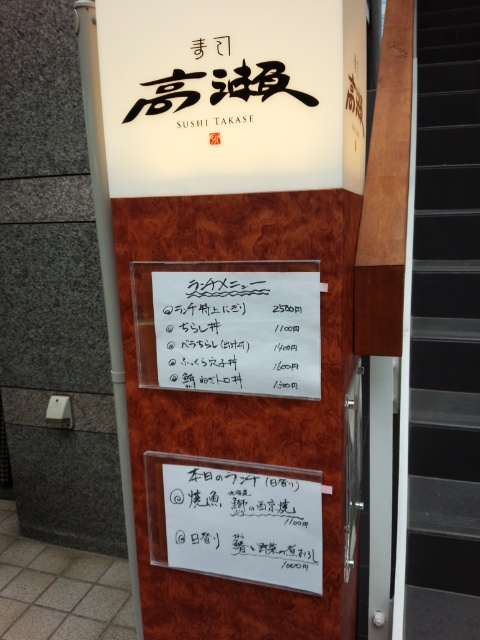 寿司
高瀬
SUSHI TAKASE
ランチメニュー
◎ランチ特上にぎり 2500円
◎ちらし丼 1100円
◎バラちらし(出汁付) 1400円
◎ふっくら穴子丼 1600円
◎鮪ねぎトロ丼 1300円
本日のランチ(日替り)
◎焼魚 北海道 鰤の西京焼
ぶり
1100円
◎日替り 鯖と野菜の煮おろし
1000円